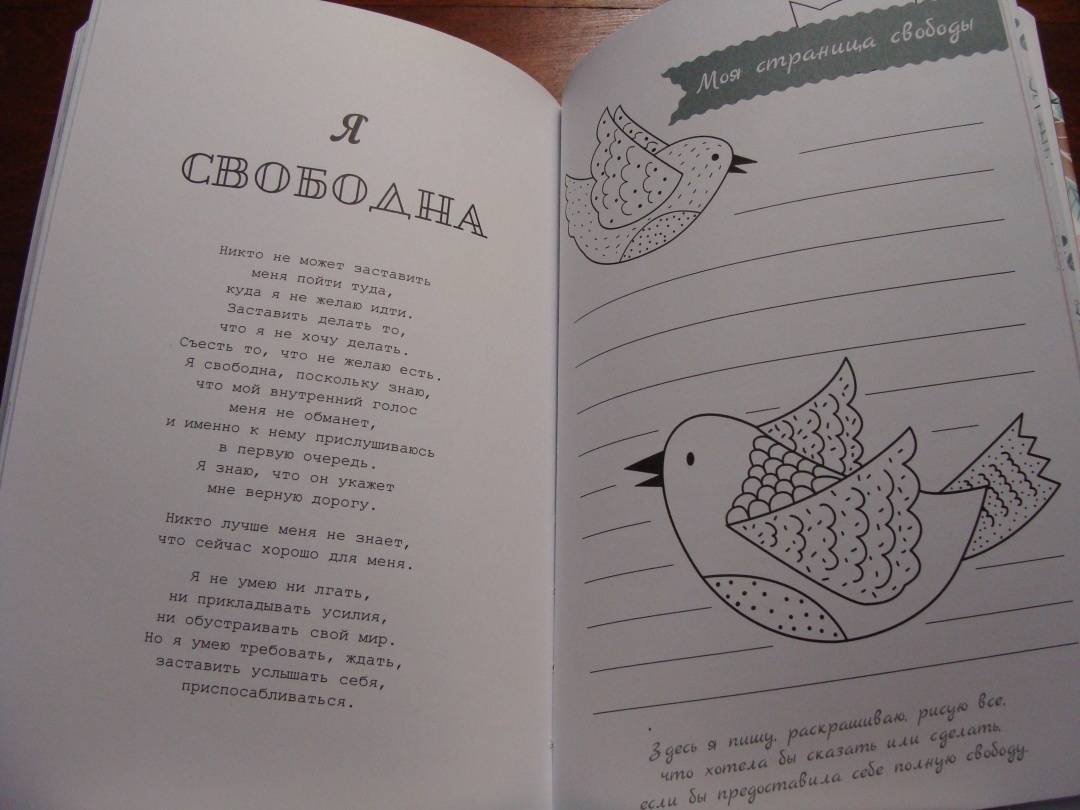 Я
СВОБОДНА
Никто не может заставить
меня пойти туда,
куда я не желаю идти.
Заставить делать то,
что я не хочу делать.
Съесть то, что не желаю есть.
Я свободна, поскольку знаю,
что мой внутренний голос
меня не обманет,
и именно к нему прислушиваюсь
в первую очередь.
Я знаю, что он укажет
мне верную дорогу.
Никто лучше меня не знает,
что сейчас хорошо для меня.
Я не умею ни лгать,
ни прикладывать усилия,
ни обустраивать свой мир.
Но я умею требовать, ждать,
заставить услышать себя,
приспосабливаться.
Моя страница свободы
Здесь я пишу, раскрашиваю, рисую все,
что хотела бы сказать или сделать,
если бы предоставила себе полную свободу.